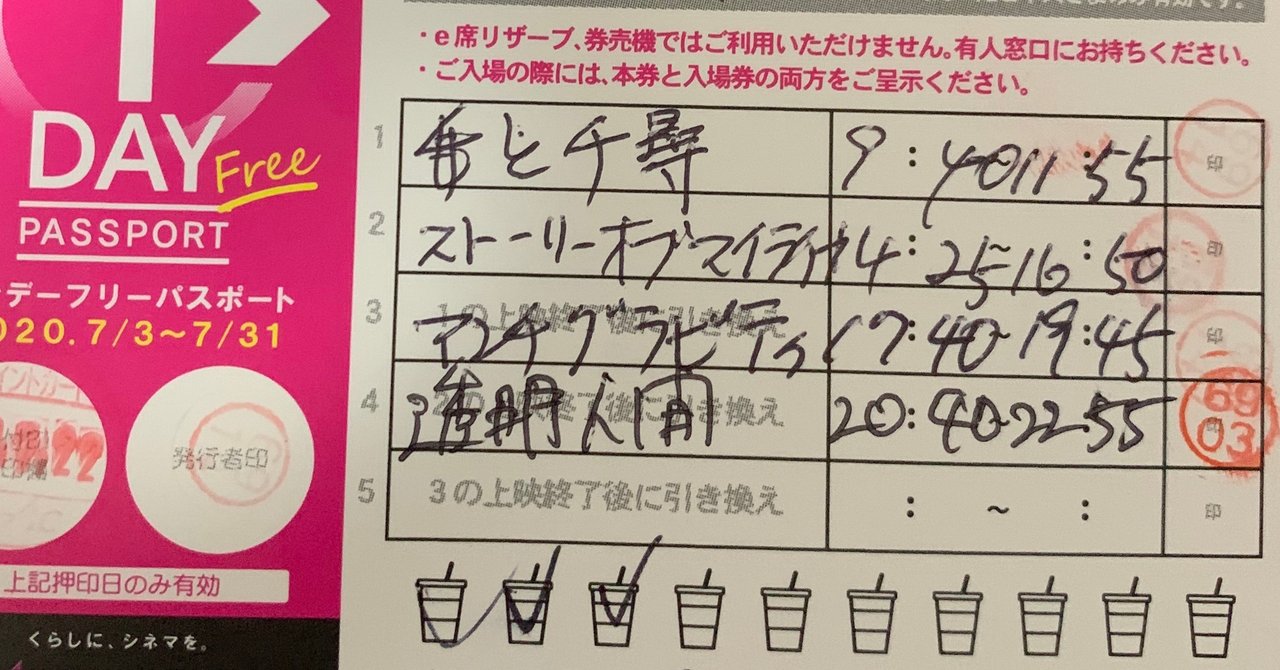 DAY Free
PASSPORT
デーフリーパスポート
020.7/3〜7/31
イントカード
付印
22
発行者印
上記押印日のみ有効
くらしに、シネマを。
・e席リザーブ、券売機ではご利用いただけません。有人窓口にお持ちください。
・ご入場の際には、本券と入場券の両方をご呈示ください。
1 千と千尋 9:40 11:55 印
2 ストーリーオブマイライフ 14:25~16:50 印
3 1の上映終了後に引き換え アンチグラビティ 17:40-19:45 印
4 2の上映終了後に引き換え 透明人間 20:40-22:55 69 03
5 3の上映終了後に引き換え : ~ : 印